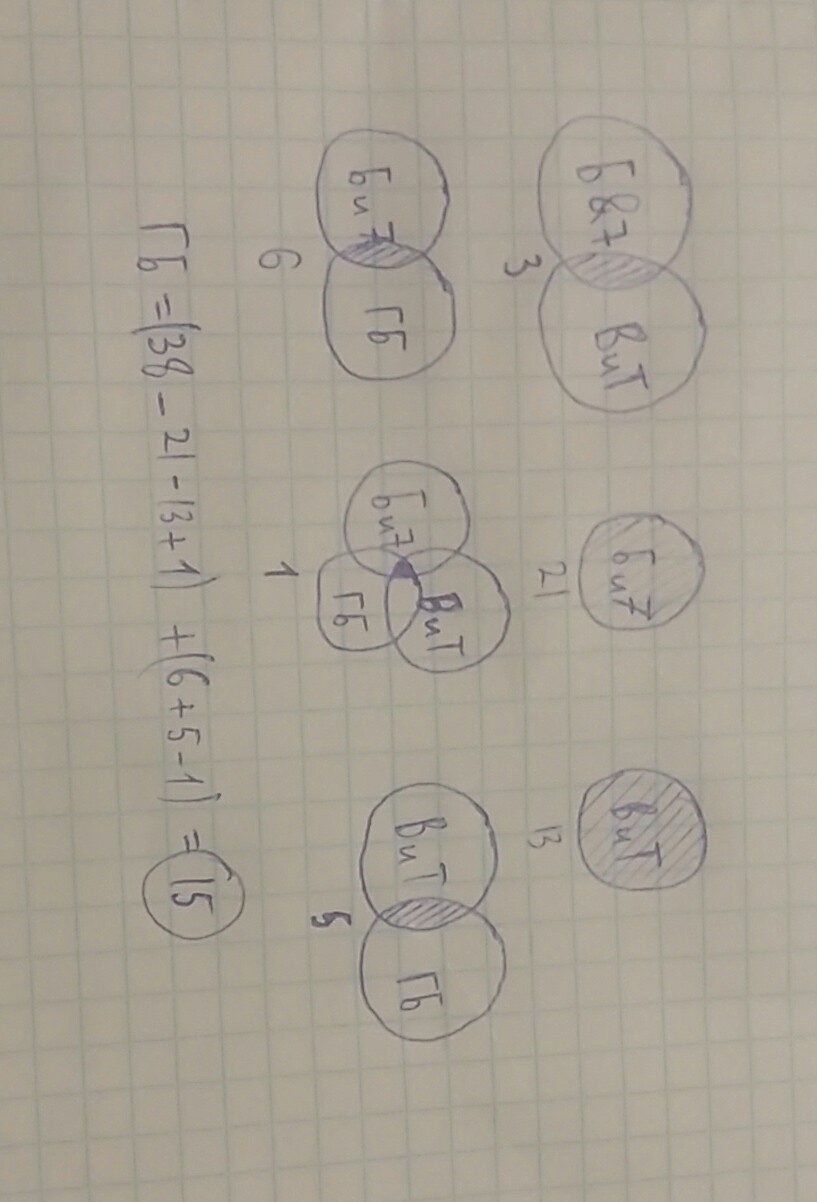 Б&7 ВиТ Би7 ВиТ
3 21 13
Би7 ГБ Би7 ВиТ ГБ ВиТ ГБ
6 1 5
ГБ =(38 - 21 - 13 + 1) + (6 + 5 - 1) = 15